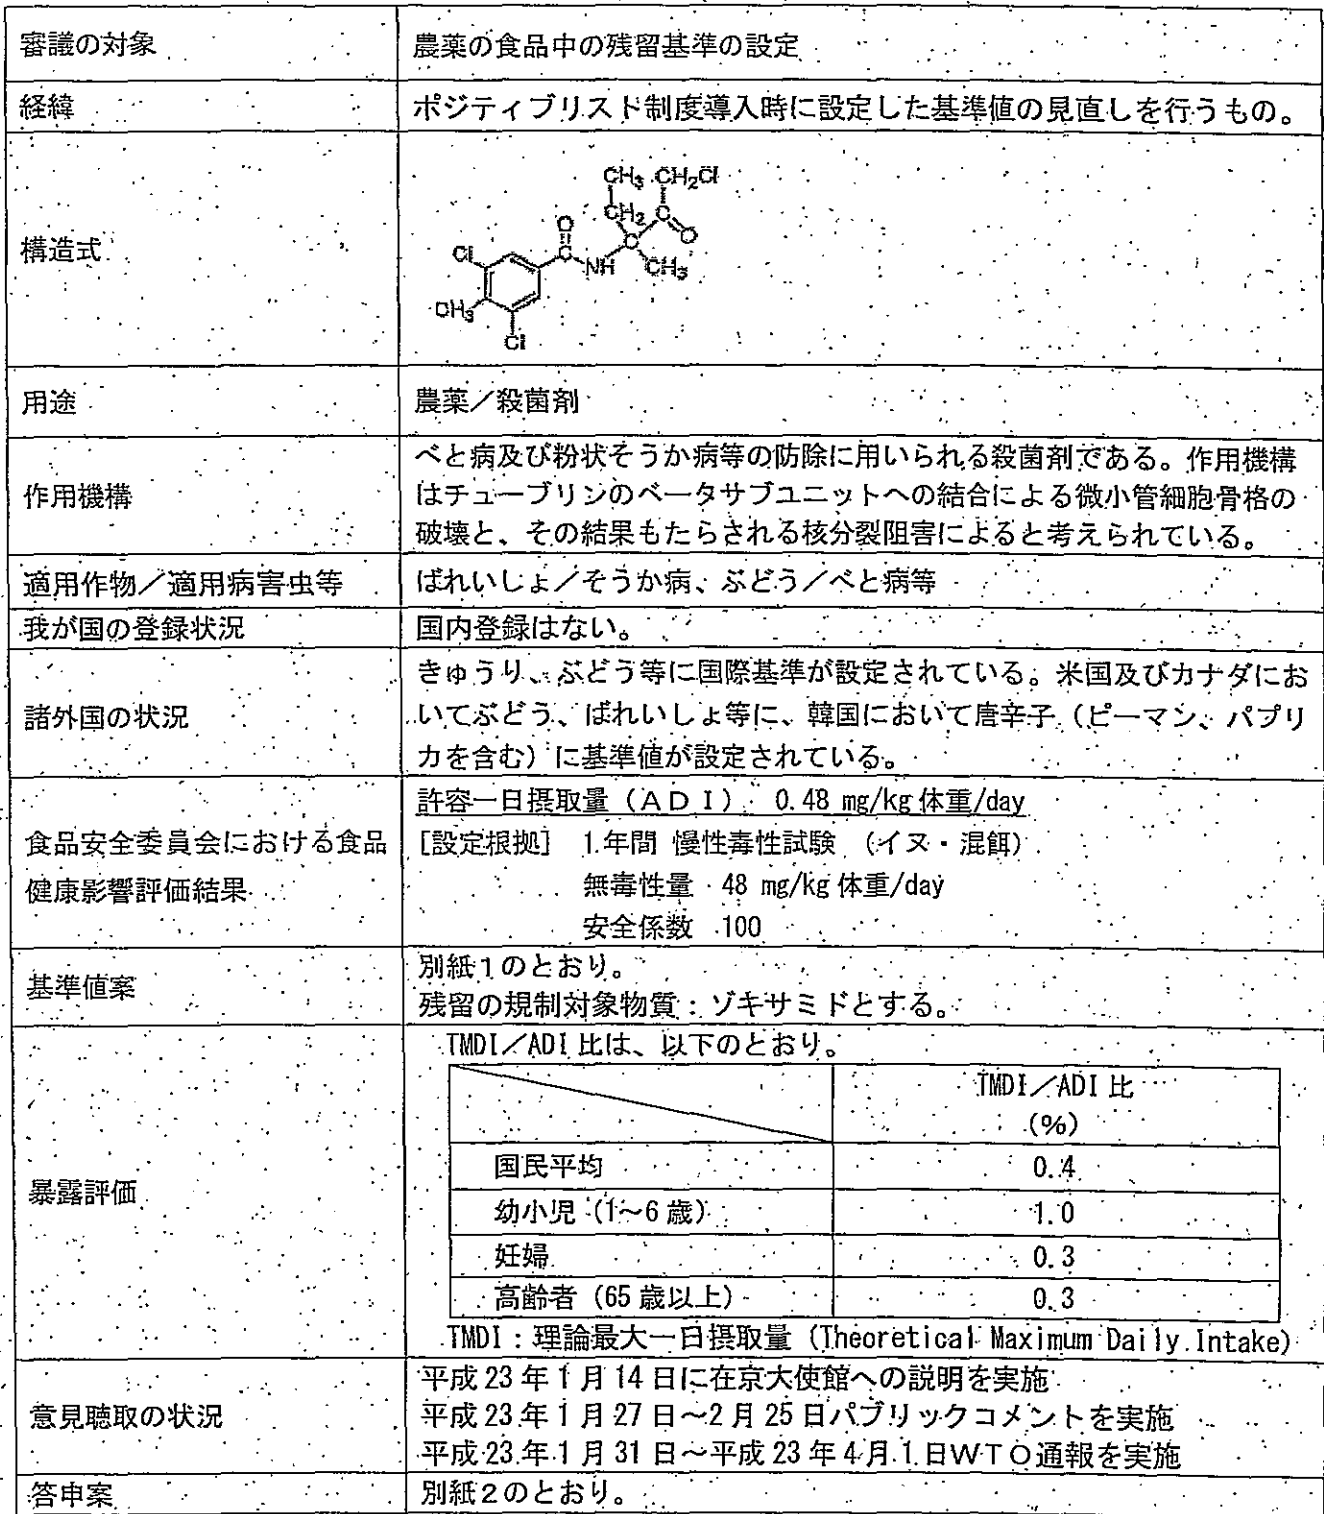 審議の対象
農薬の食品中の残留基準の設定
経緯
ポジティブリスト制度導入時に設定した基準値の見直しを行うもの。
構造式
CH₃ CH₂Cl
CH₂ C
O C O
Cl C NH CH₃
CH₃
Cl
用途
農薬／殺菌剤
作用機構
べと病及び粉状そうか病等の防除に用いられる殺菌剤である。作用機構
はチューブリンのベータサブユニットへの結合による微小管細胞骨格の
破壊と、その結果もたらされる核分裂阻害によると考えられている。
適用作物／適用病害虫等
ばれいしょ／そうか病、ぶどう／べと病等
我が国の登録状況
国内登録はない。
諸外国の状況
きゅうり、ぶどう等に国際基準が設定されている。米国及びカナダにお
いてぶどう、ばれいしょ等に、韓国において唐辛子（ピーマン、パプリ
カを含む）に基準値が設定されている。
食品安全委員会における食品
健康影響評価結果
許容一日摂取量（ＡＤＩ） 0.48 mg/kg 体重/day
［設定根拠］ 1年間 慢性毒性試験 （イヌ・混餌）
無毒性量 48 mg/kg 体重/day
安全係数 100
基準値案
別紙１のとおり。
残留の規制対象物質：ゾキサミドとする。
暴露評価
TMDI／ADI 比は、以下のとおり。
TMDI／ADI 比
(%)
国民平均 0.4
幼小児（1～6 歳） 1.0
妊婦 0.3
高齢者（65 歳以上） 0.3
TMDI：理論最大一日摂取量（Theoretical Maximum Daily Intake）
意見聴取の状況
平成 23 年 1 月 14 日に在京大使館への説明を実施
平成 23 年 1 月 27 日～2 月 25 日パブリックコメントを実施
平成 23 年 1 月 31 日～平成 23 年 4 月 1 日ＷＴＯ通報を実施
答申案
別紙２のとおり。